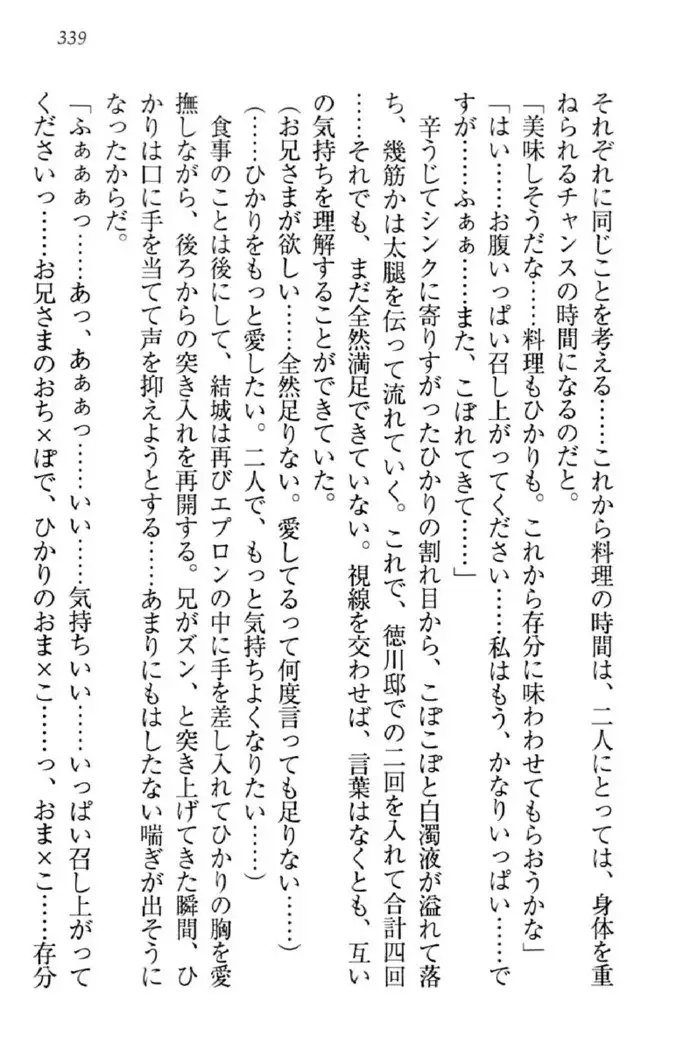 339
それぞれに同じことを考える……これから料理の時間は、二人にとっては、身体を重
ねられるチャンスの時間になるのだと。
「美味しそうだな……料理もひかりも。これから存分に味わわせてもらおうかな」
「はい……お腹いっぱい召し上がってください……私はもう、かなりいっぱい……で
すが……ふぁぁ……また、こぼれてきて……」
辛うじてシンクに寄りすがったひかりの割れ目から、こぽこぽと白濁液が溢れて落
ち、幾筋かは太腿を伝って流れていく。これで、徳川邸での二回を入れて合計四回
……それでも、まだ全然満足できていない。視線を交わせば、言葉はなくとも、互い
の気持ちを理解することができていた。
(お兄さまが欲しい……全然足りない。愛してるって何度言っても足りない……)
(……ひかりをもっと愛したい。二人で、もっと気持ちよくなりたい……)
食事のことは後にして、結城は再びエプロンの中に手を差し入れてひかりの胸を愛
撫しながら、後ろからの突き入れを再開する。兄がズン、と突き上げてきた瞬間、ひ
かりは口に手を当てて声を抑えようとする……あまりにもはしたない喘ぎが出そうに
なったからだ。
「ふぁぁぁっ……あっ、あぁぁっ……いい……気持ちいい……いっぱい召し上がって
くださいっ……お兄さまのおち×ぽで、ひかりのおま×こ……っ、おま×こ……存分